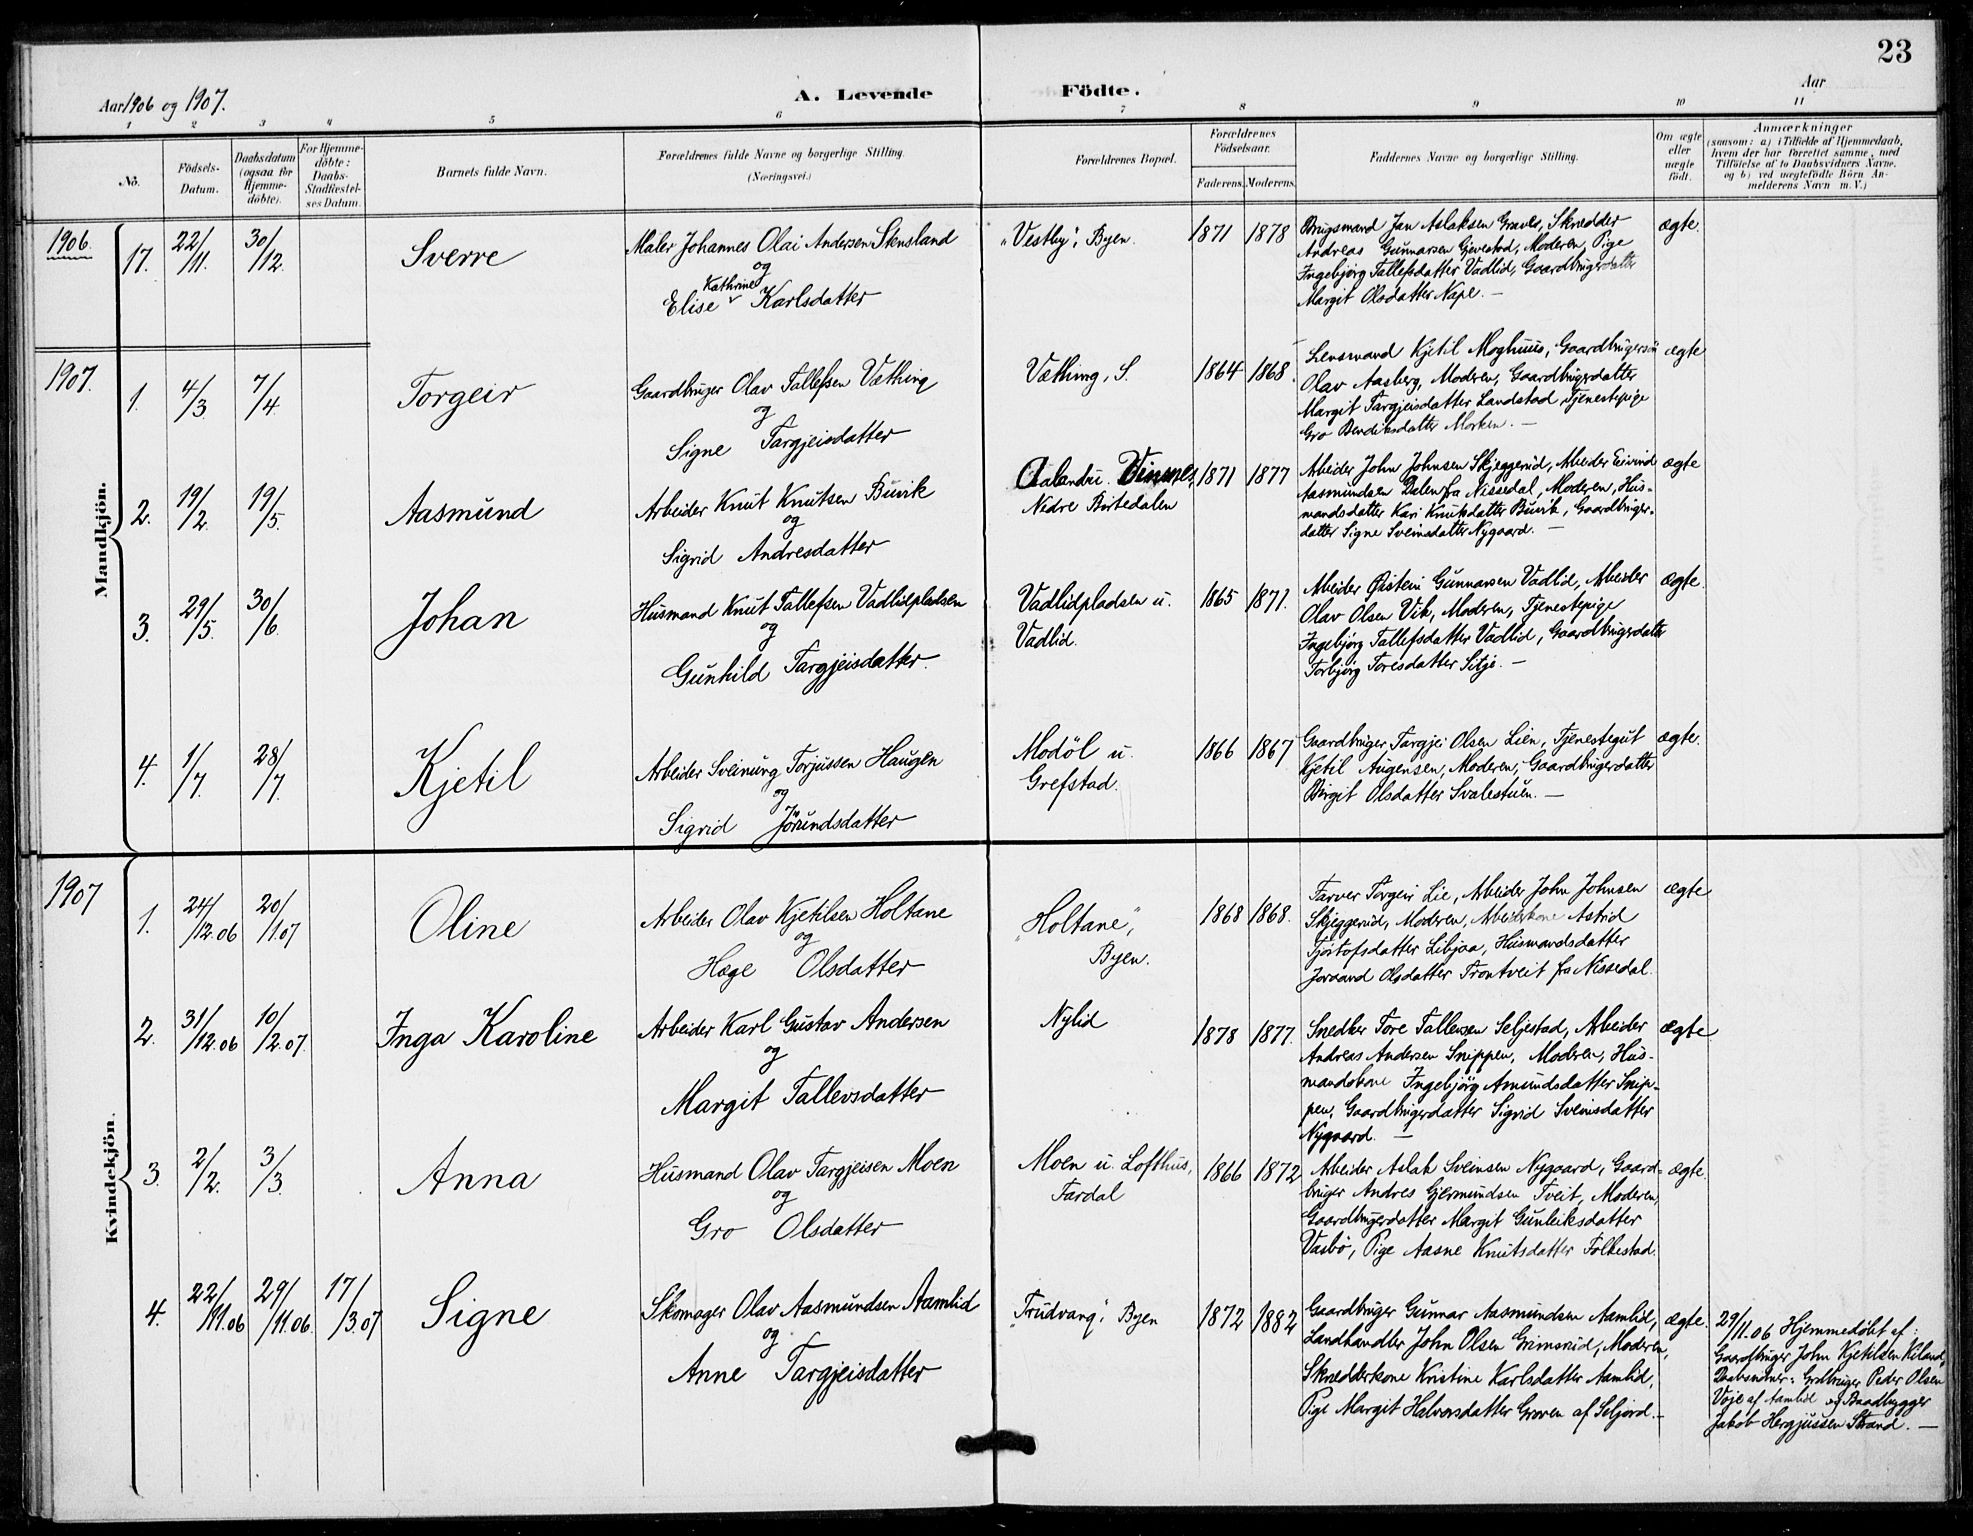 23
Aar 1906 og 1907.
A. Levende
Födte.
Aar
1 2 3 4 5 6 7 8 9 10 11
No.
Födsels-
Datum.
Daabsdatum
(ogsaa for
Hjemme-
döbte).
For Hjemme-
döbte:
Daabs-
Stadfæstel-
ses Datum.
Barnets fulde Navn.
Forældrenes fulde Navne og borgerlige Stilling.
(Næringsvei.)
Forældrenes Bopæl.
Forældrenes
Födselsaar.
Faderens. Moderens.
Faddernes Navne og borgerlige Stilling.
Om ægte
eller
uægte
födt.
Anmærkninger
(saasom: a) i Tilfælde af Hjemmedaab,
hvem der har forrettet samme, med
Tilföielse af to Daabsvidners Navne.
og b) ved uægtefödte Börn An-
melderens Navn m. V.)
Mandkjön.
1906.
17. 22/11. 30/12.
Sverre
Maler Johannes Olai Andersen Stensland
og
Kathrine
Elise Karlsdatter
"Vestby", Byen.
1871 1878
Brugsmand Jan Aslaksen Graver, Skrædder
Andreas Gunnarsen Gjevestad, Moderen, Pige
Ingebjörg Tallefsdatter Vadlid, Gaardbrugerdatter
Margit Olsdatter Nape. —
ægte.
1907.
1. 4/3. 7/4.
Torgeir
Gaardbruger Olav Tallefsen Væthing
og
Signe Targjeisdatter
Væthing, S.
1864 1868.
Lensmand Kjetil Moghuus, Gaardbrugersön
Olav Aasberg, Moderen, Gaardbrugerdatter
Margit Targjeisdatter Landstad, Tjenestepige
Gro Bendiksdatter Morken. —
ægte
2. 19/2. 19/5.
Aasmund
Arbeider Knut Knutsen Buvik
og
Sigrid Andresdatter
Aalandri. Vinnnes,
Nedre Birtedalen
1871 1877
Arbeider John Johnsen Skjeggerud, Arbeider Eivind
Aasmundsen Dalen fra Nissedal, Moderen, Hus-
mandsdatter Kari Knutsdatter Buvik, Gaardbruger-
datter Signe Sveinsdatter Nygaard. —
ægte
3. 29/5. 30/6.
Johan
Husmand Knut Tallefsen Vadlidpladsen
og
Gunhild Targjeisdatter.
Vadlidpladsen u.
Vadlid.
1865 1871.
Arbeider Øistein Gunnarsen Vadlid, Arbeider
Olav Olsen Vik, Moderen, Tjenestepige
Ingebjörg Tallefsdatter Vadlid, Gaardbrugerdatter
Torbjörg Toresdatter Sitje. —
ægte.
4. 1/7. 28/7.
Kjetil
Arbeider Sveinung Torjussen Haugen
og
Sigrid Jörundsdatter
Modöl u.
Grefstad.
1866 1867
Gaardbruger Targjei Olsen Lien, Tjenestegut
Kjetil Augensen, Moderen, Gaardbrugerdatter
Birgit Olsdatter Svalestuen. —
ægte.
Kvindekjön.
1907
1. 24/12.06 20/1.07
Oline
Arbeider Olav Kjetilsen Holtane
og
Hæge Olsdatter
"Holtane",
Byen.
1868 1868.
Farver Torgeir Lie, Arbeider John Johnsen
Skjeggerud, Moderen, Arbeiderkone Astrid
Tjöstofsdatter Libjaa, Husmandsdatter
Joraand Olsdatter Trontveit fra Nissedal.
ægte
2. 31/12.06 10/2.07.
Inga Karoline
Arbeider Karl Gustav Andersen
og
Margit Tallevsdatter
Nylid
1878 1877.
Snedker Tore Tallevsen Seljestad, Arbeider
Andreas Andersen Snippen, Moderen, Hus-
mandskone Ingebjörg Amundsdatter Snip-
pen, Gaardbrugerdatter Sigrid Sveinsdatter
Nygaard. —
ægte
3. 2/2. 3/3.
Anna
Husmand Olav Targjeisen Moen
og
Gro Olsdatter
Moen u. Lofthus,
Tardal
1866 1872
Arbeider Aslak Sveinsen Nygaard, Gaard-
bruger Andres Gjermundsen Tveit, Moderen,
Gaardbrugerdatter Margit Gunleiksdatter
Vasbö, Pige Aasne Knutsdatter Folkestad.
ægte.
4. 22/11.06 29/11.06. 17/3.07
Signe
Skomager Olav Aasmundsen Aamlid
og
Anne Targjeisdatter
"Trudvang", Byen
1872 1882
Gaardbruger Gunnar Aasmundsen Aamlid,
Landhandler John Olsen Grimsrud, Moderen,
Skrædderkone Kristine Karlsdatter Aamlid,
Pige Margit Halvorsdatter Groven af Seljord. —
ægte.
29/11.06 Hjemmedøbt af:
Gaardbruger John Kjetilsen Kiland,
Daabsvidner: Grdbruger Peder Olsen
Voje af Aamlid og Baadbygger
Jakob Hergjussen Strand. —